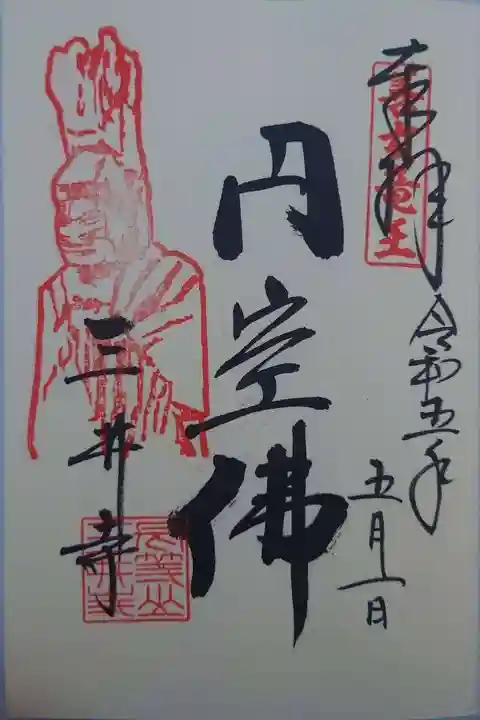 奉拝
善女竜王
令和五年
五月一日
円空佛
三井寺